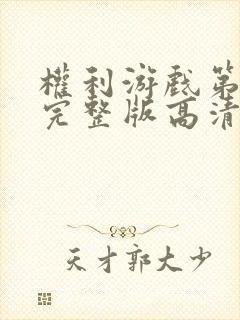 權利游戲第
完整版高清
天才郭大少